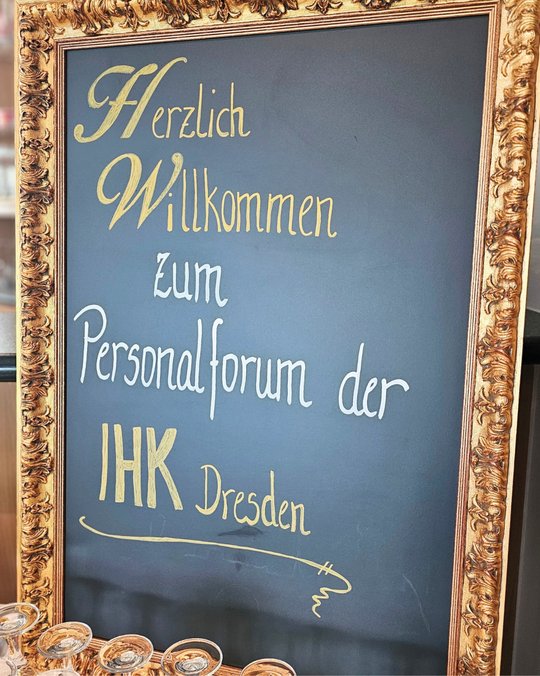 Herzlich
Willkommen
zum
Personalforum der
IHK Dresden